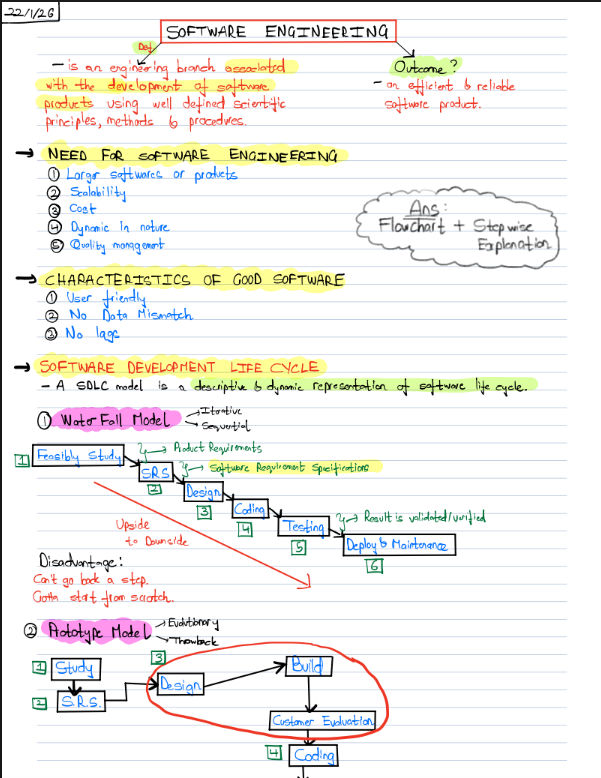 22/1/26
SOFTWARE ENGINEERING
Def
- is an engineering branch associated
with the development of software
products using well defined scientific
principles, methods & procedures.
Outcome?
- an efficient & reliable
software product.
→ NEED FOR SOFTWARE ENGINEERING
① Larger softwares or products
② Scalability
③ Cost
④ Dynamic in nature
⑤ Quality management
Ans:
Flowchart + Stepwise
Explanation
→ CHARACTERISTICS OF GOOD SOFTWARE
① User friendly
② No Data Mismatch
③ No lags
→ SOFTWARE DEVELOPMENT LIFE CYCLE
- A SDLC model is a descriptive & dynamic representation of software life cycle.
① Water Fall Model
→ Iterative
→ Sequential
1 Feasibly Study
→ Product Requirements
SRS
2
→ Software Requirement Specifications
Design
3
Coding
4
Testing
5
→ Result is validated/verified
Deploy & Maintenance
6
Upside
to Downside
Disadvantage:
Can't go back a step.
Gotta start from scratch.
② Prototype Model
→ Evolutionary
→ Throwback
1 Study
2 S.R.S.
3
Design
Build
Customer Evaluation
4 Coding